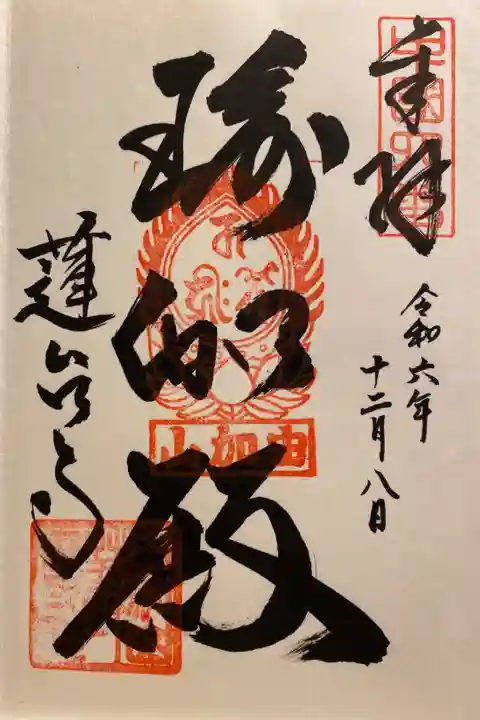 奉拝
令和六年
十二月八日
瑜伽殿
由加山
蓮台寺